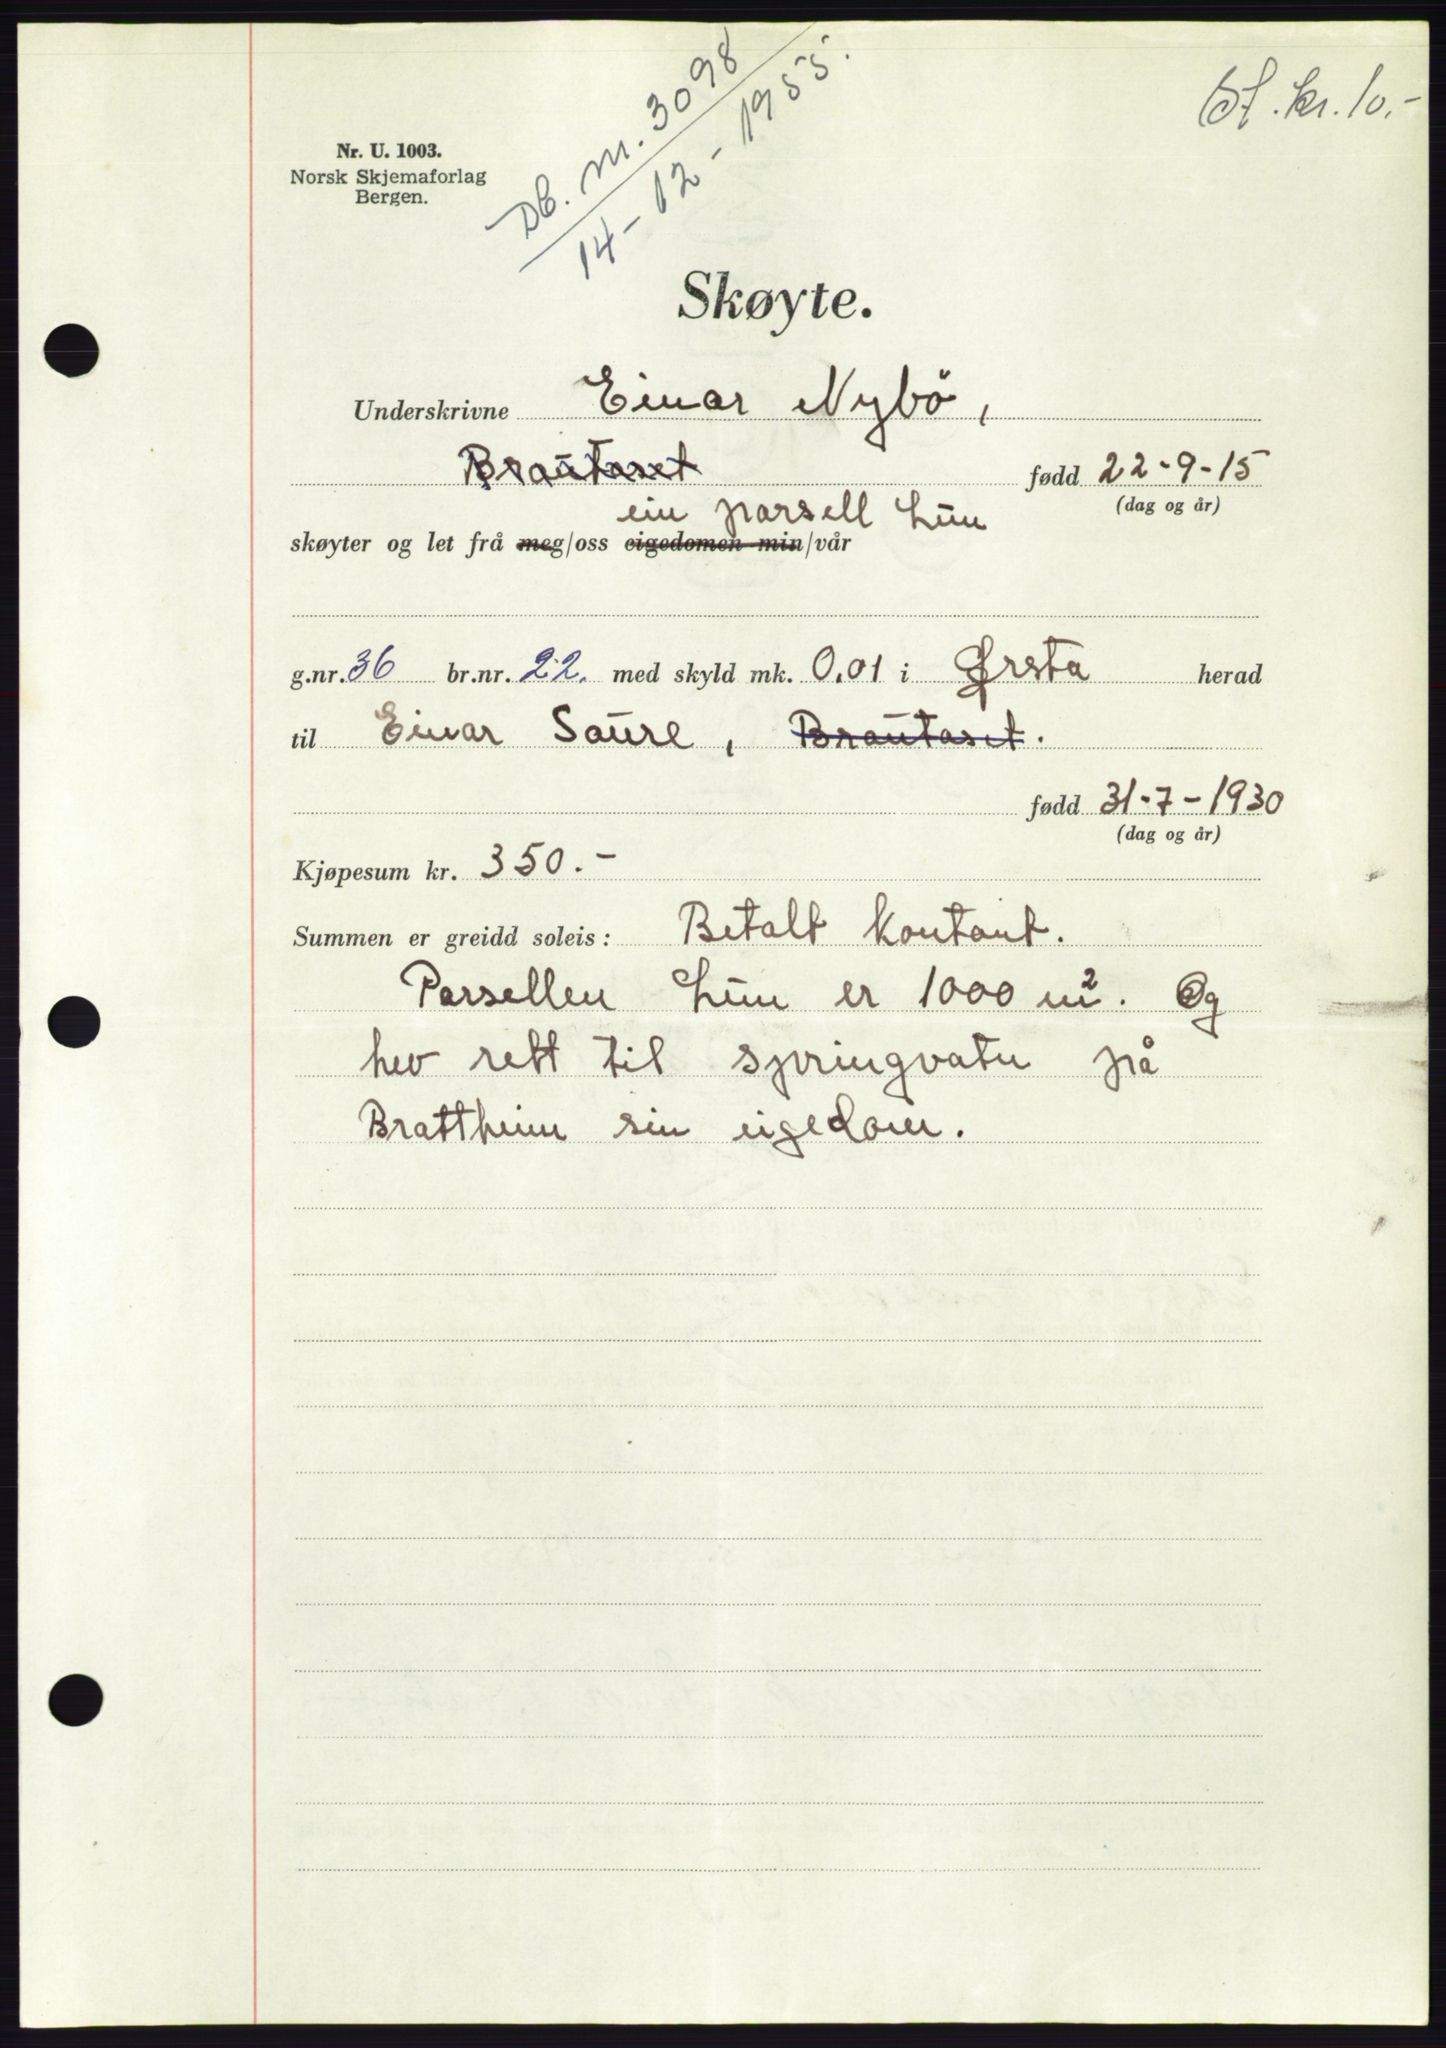 Db. nr. 3098
14-12-1955.
St. kr. 10.-
Nr. U. 1003.
Norsk Skjemaforlag
Bergen.
Skøyte.
Underskrivne Einar Nybö,
Brautaset fødd 22-9-15
(dag og år)
ein parsell Lün
skøyter og let frå meg/oss eigedomen min/vår
g.nr. 36 br.nr. 22. med skyld mk. 0.01 i Ørsta herad
til Einar Saure, Brautaset.
fødd 31-7-1930
(dag og år)
Kjøpesum kr. 350.-
Summen er greidd soleis: Betalt kontant.
Parsellen Lün er 1000 m². Og
hev rett til springvatn på
Brattheim sin eigedom.